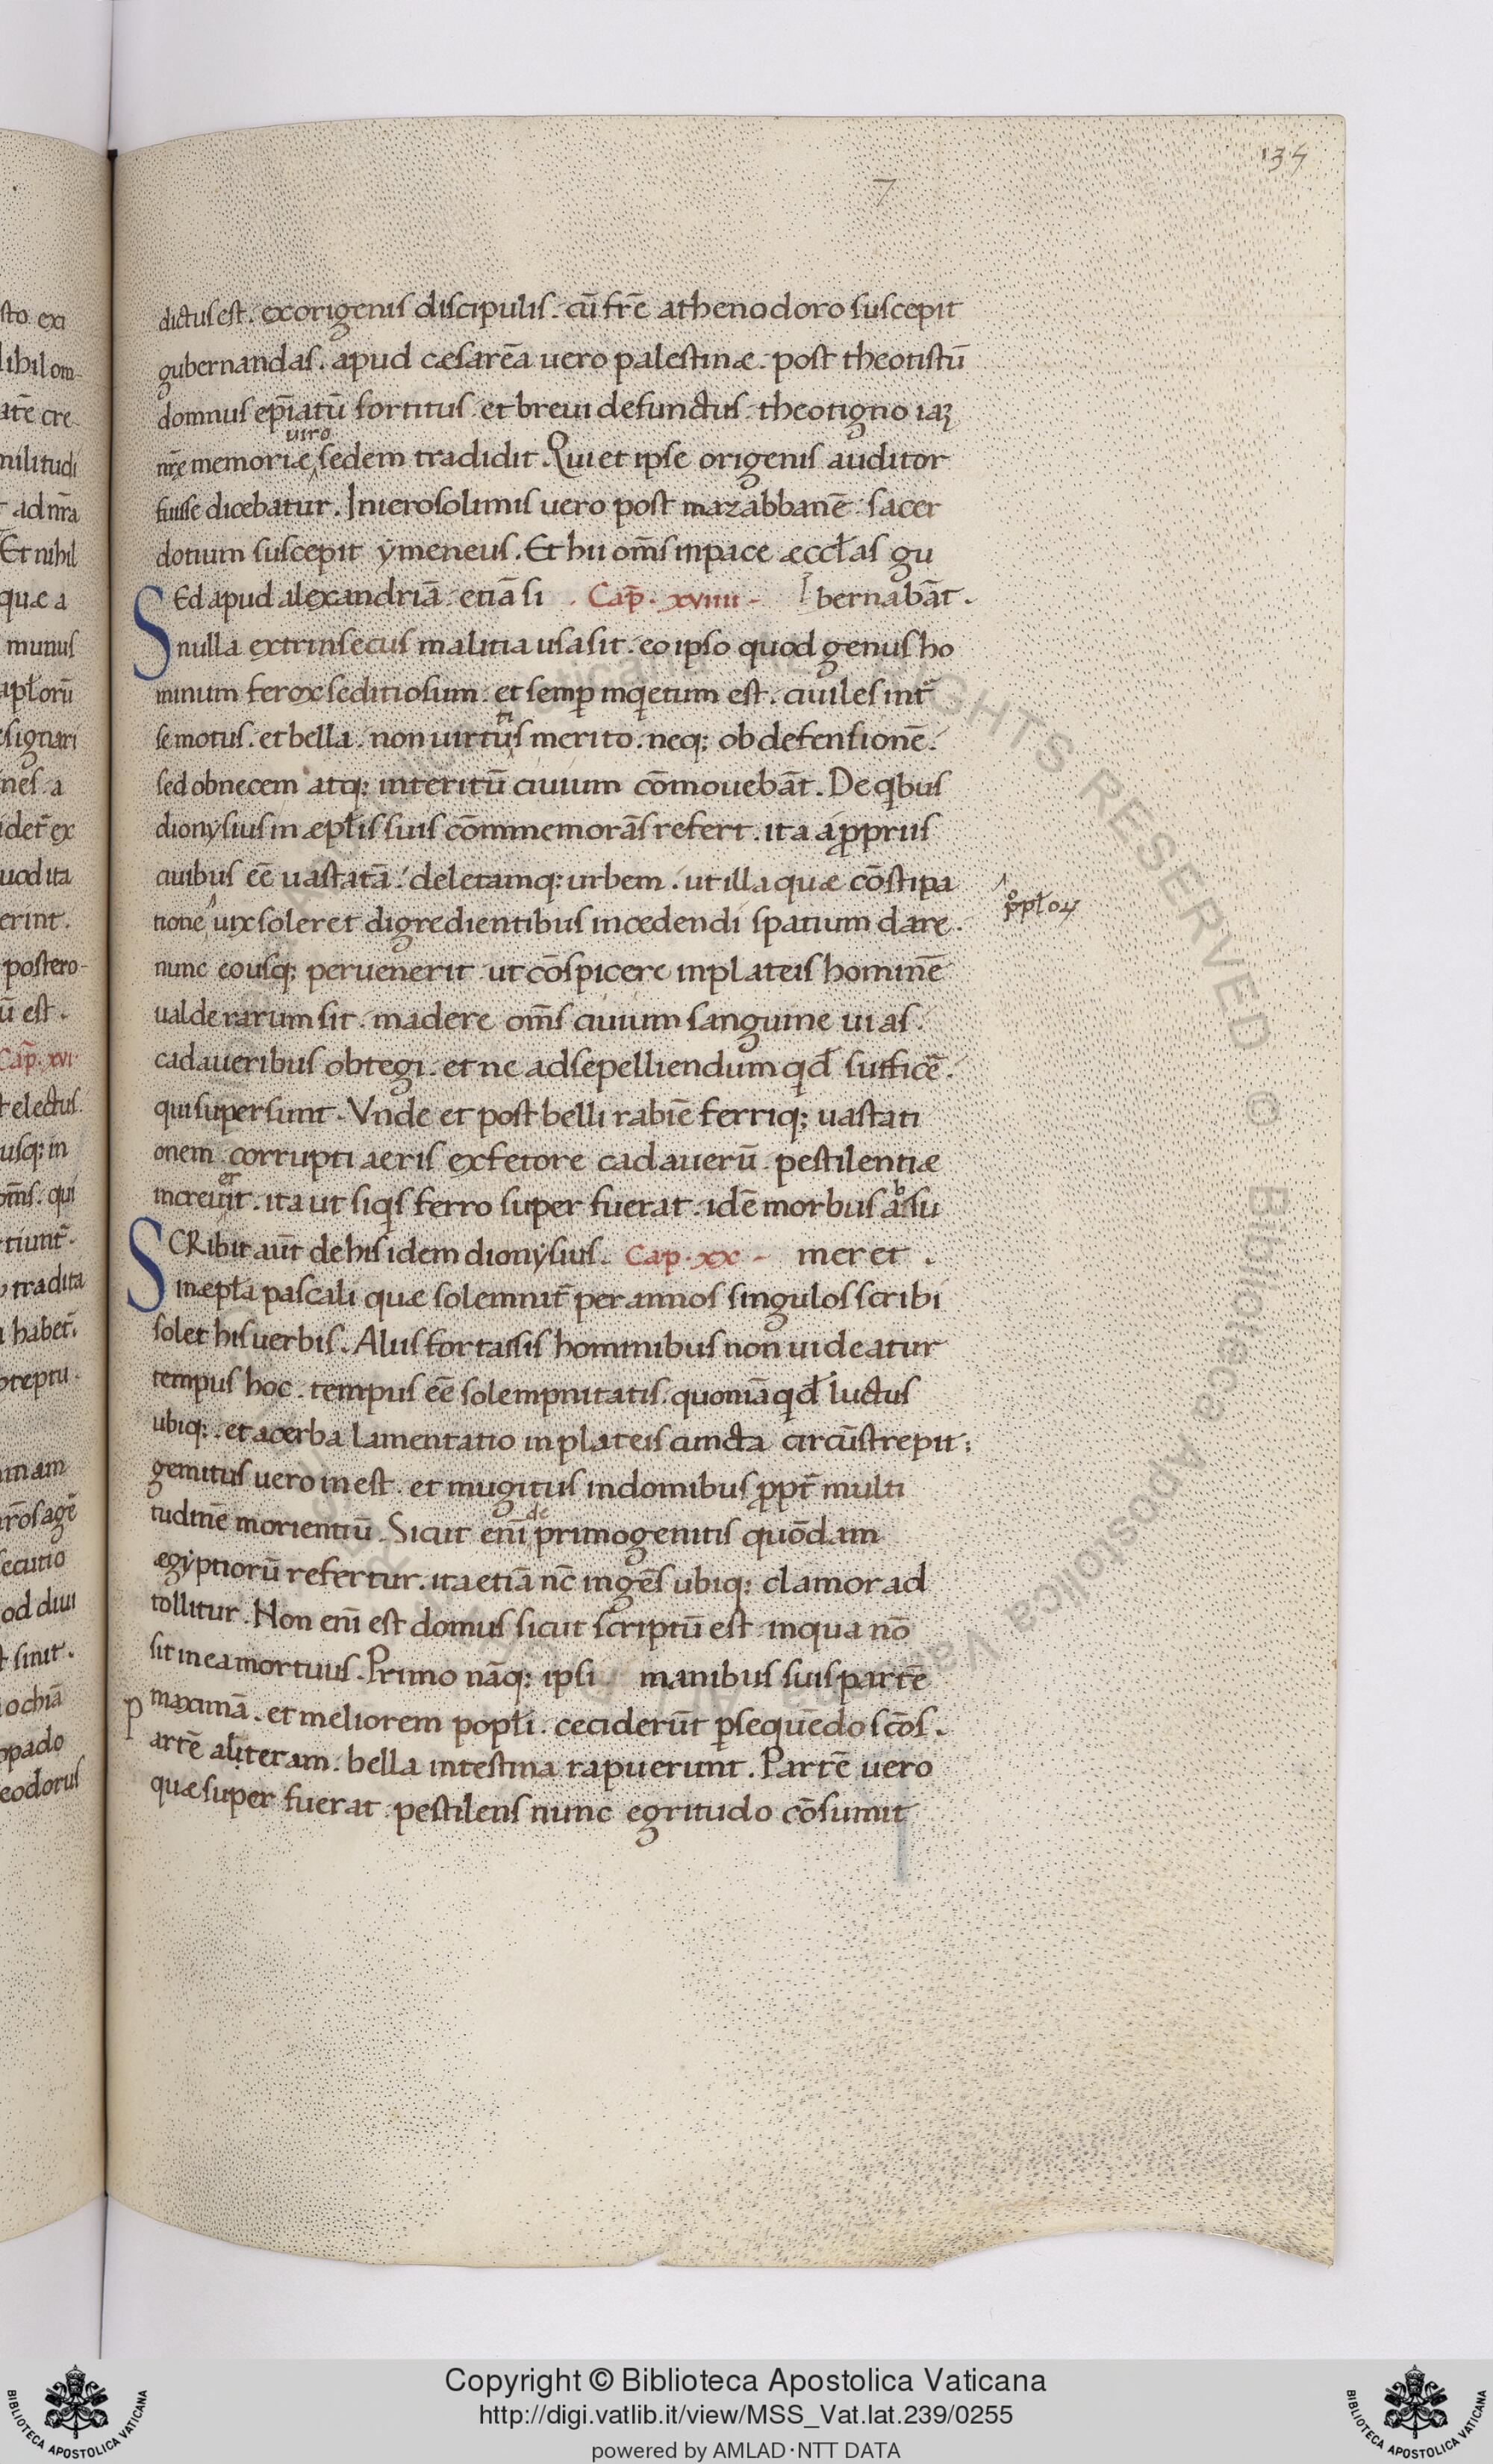 134
7
dictus est. ex origenis discipulis. cū fr̄e athenodoro suscepit
gubernandas. apud cæsareā uero palestinæ. post theotistū
domnus ep̄iatū sortitus. et breui defunctus. theotigno
uiro
nr̄ę memoriæ sedem tradidit. Qui et ipse origenis auditor
fuisse dicebatur. In ierosolimis uero post mazabbanē sacer
dotium suscepit ẏmeneus. Et hii om̄s in pace æccl̄as gu
bernabāt.
Sed apud alexandriā. etiā si Cap̄. xviiii
nulla extrinsecus malitia usa sit. eo ipso quod genus ho
minum ferox seditiosum. et semp̱ inq̇etum est. ciuiles int̄
ti
se motus. et bella. non uirtūs merito. neq; ob defensionē.
sed ob necem atq; interitū ciuium cōmouebāt. De qi̇bus
dionẏsius in æpl̄is suis cōmmemorās refert. ita a p̱propriis
ciuibus ēē uastatā. deletamq; urbem. ut illa quæ cōstipa
p̱ pl̄oꝝ
tione uix soleret digredientibus incedendi spatium dare.
nunc eousq; peruenerit ut cōspicere in plateis hominē
ualde rarum sit. madere om̄s ciuium sanguine uias.
cadaueribus obtegi. et ne ad sepelliendum qid̄ sufficē.
qui supersunt. Vnde et post belli rabiē ferriq; uastati
onem corrupti aeris ex fetore cadauerū pestilentiæ
er
increuit. ita ut siqis ferro super fuerat. idē morbus a su
b
meret.
SCRibit aūt de his idem dionẏsius. Cap. xx
in æpl̄a pascali quæ solemnit̄ per annos singulos scribi
solet his uerbis. Aliis fortassis hominibus non uideatur
tempus hoc. tempus ēē solempnitatis. quoniā qid̄ luctus
ubiq;. et acerba lamentatio in plateis cuncta circūstrepit;
gemitus uero in est. et mugitus in domibus p̱pt̄ multi
de
tudinē morientiū. Sicut eni̅ primogenitis quōdam
ægẏptiorū refertur. ita etiā nc̄ ingēs ubiq; clamor ad
tollitur. Non eni̅ est domus sicut scriptū est. in qua nō
sit in ea mortuus. Primo nāq; ipsi manibus suis partē
maximā. et meliorem popl̄i. ceciderūt p̱sequēdo sc̄os.
Partē aliteram. bella intestina rapuerunt. Partē uero
quæ super fuerat. pestilens nunc egritudo cōsumit
Copyright © Biblioteca Apostolica Vaticana
http://digi.vatlib.it/view/MSS_Vat.lat.239/0255
powered by AMLAD·NTT DATA